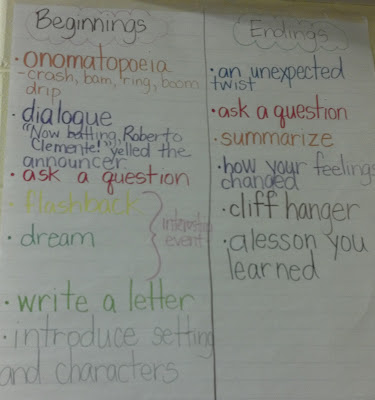 Beginnings
• onomatopoeia
- crash, bam, ring, boom
drip
• dialogue
"Now batting, Roberto
Clemente!" yelled the
announcer
• ask a question
• flashback
• dream
event
• write a letter
• introduce setting
and characters
Endings
• an unexpected
twist
• ask a question
• summarize
• how your feelings
changed
• cliff hanger
• a lesson you
learned